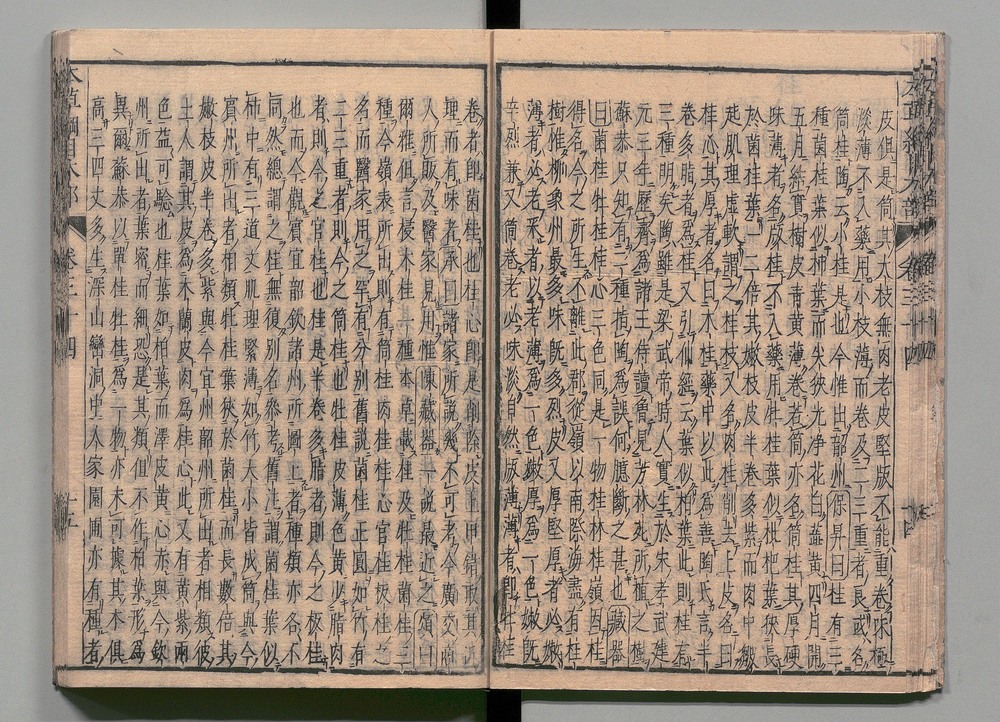 皮俱是筒其大枝無肉老皮堅版不能重卷味極
淡薄不入藥用小枝薄而卷及二三重者良或名
筒桂陶云小桂是也今惟出韶州保昇曰桂有三
種菌桂葉似柿葉而尖狹光净花白蕊黄四月開
五月結實樹皮青黄薄卷若筒亦名筒桂其厚硬
味薄者名版桂不入藥用牡桂葉似枇杷葉狹長
於菌桂葉一二倍其嫩枝皮半卷多紫而肉中皺
起肌理虛軟謂之桂枝又名肉桂削去上皮名曰
桂心其厚者名曰木桂藥中以此為善陶氏言半
卷多脂者為桂又引仙經云葉似柏葉此則桂有
三種明矣陶雖是梁武帝時人實生於宋孝武建
元三年歷齊為諸王侍讀嘗見芳林苑所植之樹
蘇恭只知有二種指陶為誤何臆斷之甚也藏器
曰菌桂牡桂桂心三色同是一物桂林桂嶺因桂
得名今之所生不離此郡從嶺以南際海盡有桂
樹惟柳象州最多味既辛烈皮又厚堅厚者必嫩
薄者必老采者以老薄為一色嫩厚為一色嫩既
辛烈兼又筒卷老必味淡自然版薄薄者即牡桂
卷者即菌桂也桂心即是削除皮上甲錯取其近
理而有味者承曰諸家所説幾不可考今廣交商
人所販及醫家見用惟陳藏器一説最近之頌曰
爾雅但言梫木桂一種本草載桂及牡桂菌桂三
種今嶺表所出則有筒桂肉桂桂心官桂板桂之
名而醫家用之罕有分别舊説菌桂正圓如竹有
二三重者則今之筒桂也牡桂皮薄色黄少脂肉
者則今之官桂也桂是半卷多脂者則今之板桂
也而今觀賓宜韶欽諸州所圖上者種類亦各不
同然總謂之桂無復别名參考舊注謂菌桂葉似
柿中有三道文肌理緊薄如竹大小皆成筒與今
賓州所出者相類牡桂葉狹於菌桂而長數倍其
嫩枝皮半卷多紫與今宜州韶州所出者相類彼
土人謂其皮為木蘭皮肉為桂心此又有黄紫兩
色益可驗也桂葉如柏葉而澤皮黄心赤與今欽
州所出者葉密而細恐是其類但不作柏葉形為
異爾蘇恭以單桂牡桂為一物亦未可據其木俱
高三四丈多生深山蠻洞中人家園圃亦有種者